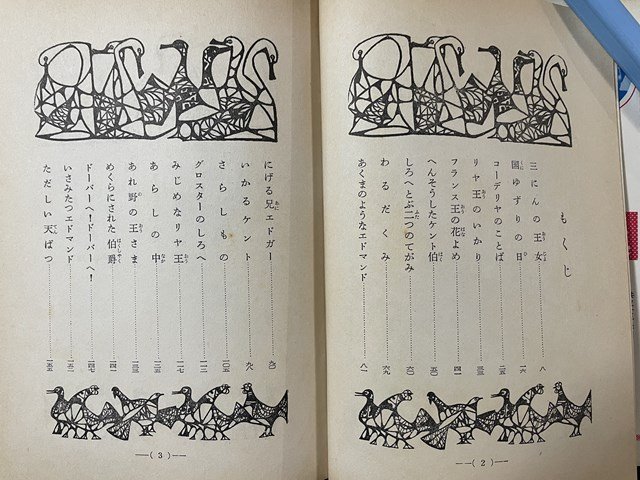 もくじ
三にんの王女 八
国ゆずりの日 一六
コーデリヤのことば 二五
リヤ王のいかり 三三
フランス王の花よめ 四一
へんそうしたケント伯 五〇
しろへとぶ二つのてがみ 六〇
わるだくみ 六九
あくまのようなエドマンド 八一
—(2)—
にげる兄エドガー 九〇
いかるケント 九八
さらしもの 一〇五
グロスターのしろへ 一一二
みじめなリヤ王 一一七
あらしの中 一二五
あれ野の王さま 一三三
めくらにされた伯爵 一四一
ドーバーへ！ドーバーへ！ 一四七
いさみたつエドマンド 一五一
ただしい天ばつ 一五五
—(3)—